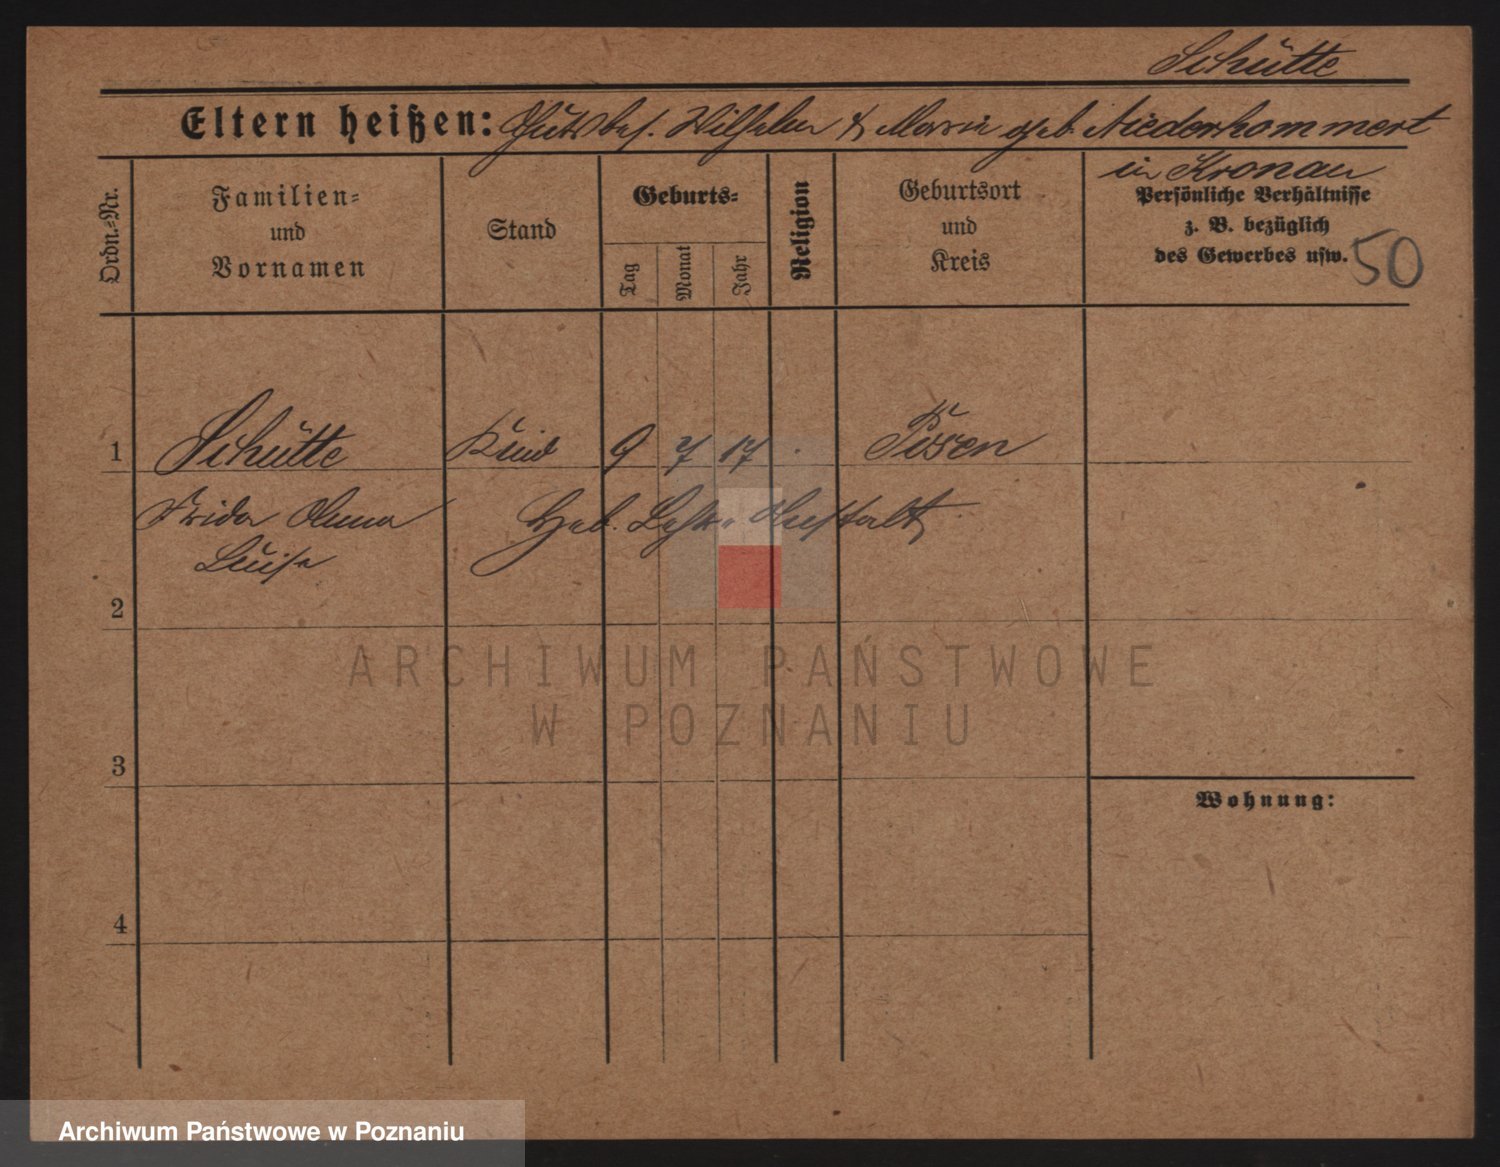 Schütte
Eltern heißen: Gutsbes. Wilhelm & Marie geb. Niederhommert
in Kronau
Ordn.-Nr.
Familien-
und
Vornamen
Stand
Geburts-
Tag
Monat
Jahr
Religion
Geburtsort
und
Kreis
Persönliche Verhältnisse
z. B. bezüglich
des Gewerbes usw.
50
1
Schütte
Kind
9
7
17
Posen
Frida Anna
Luise
Geb. Anstalt
2
3
4
Wohnung:
ARCHIWUM PAŃSTWOWE
W POZNANIU
Archiwum Państwowe w Poznaniu